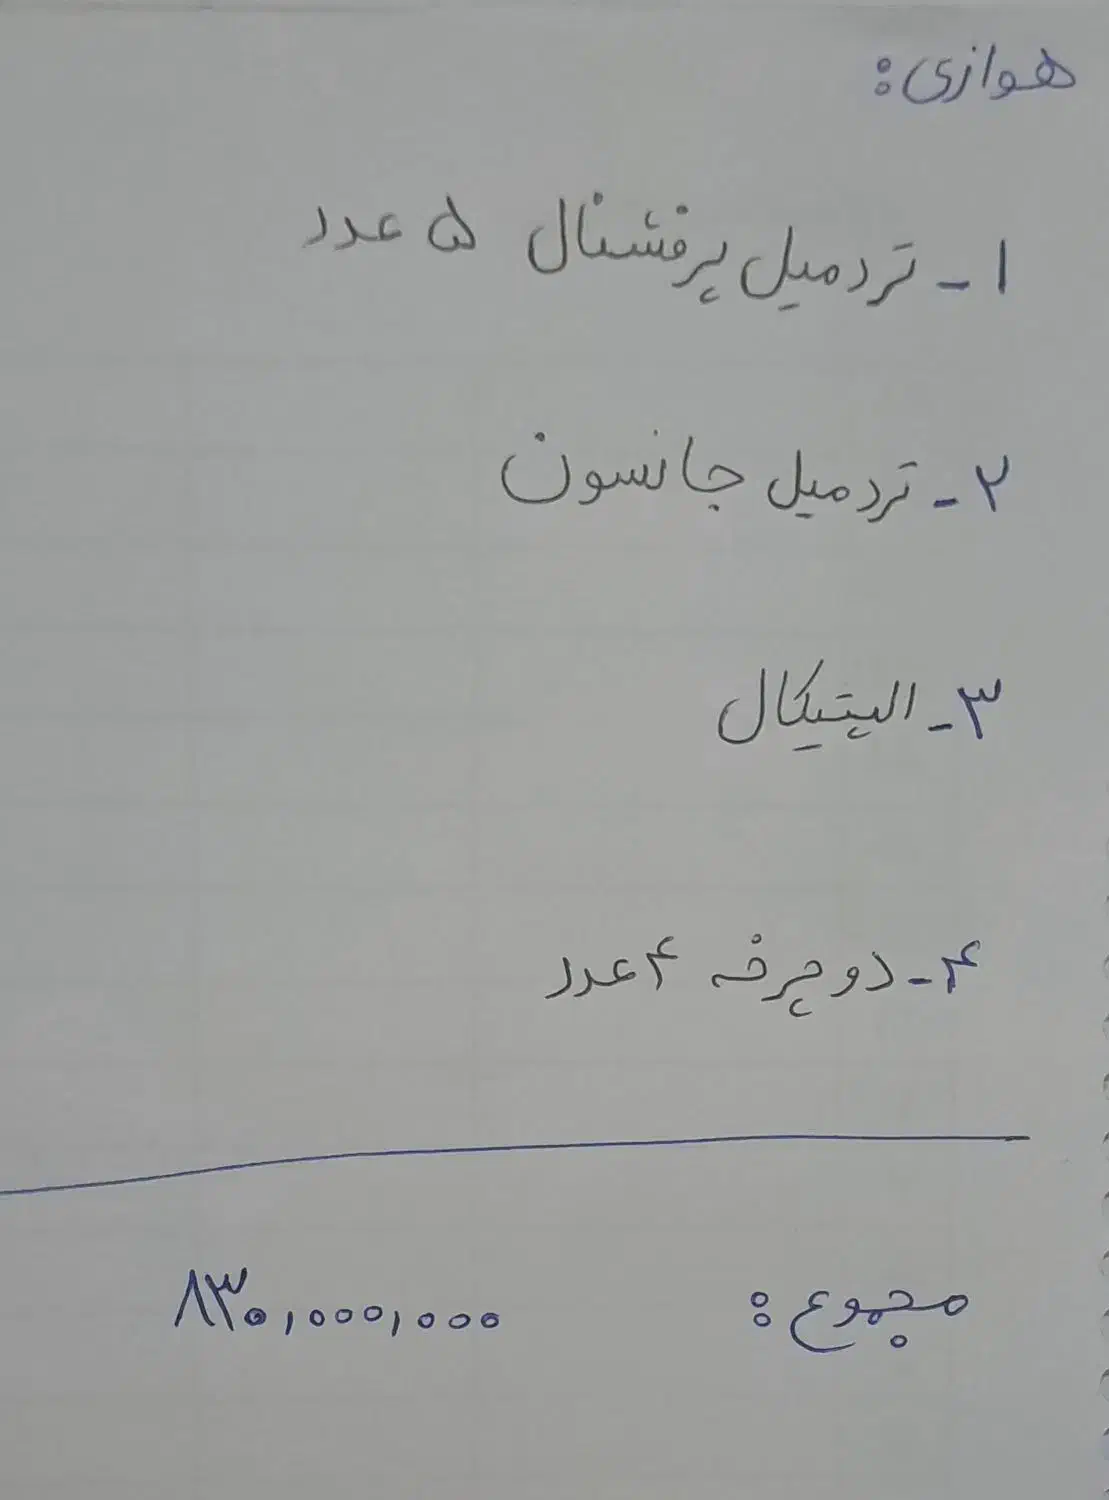 هوازی:
۱- تردمیل پرفشنال ۵ عدد
۲- تردمیل جانسون
۳- الپتیکال
۴- دوچرخه ۴ عدد
مجموع: ۸۳۰,۰۰۰,۰۰۰